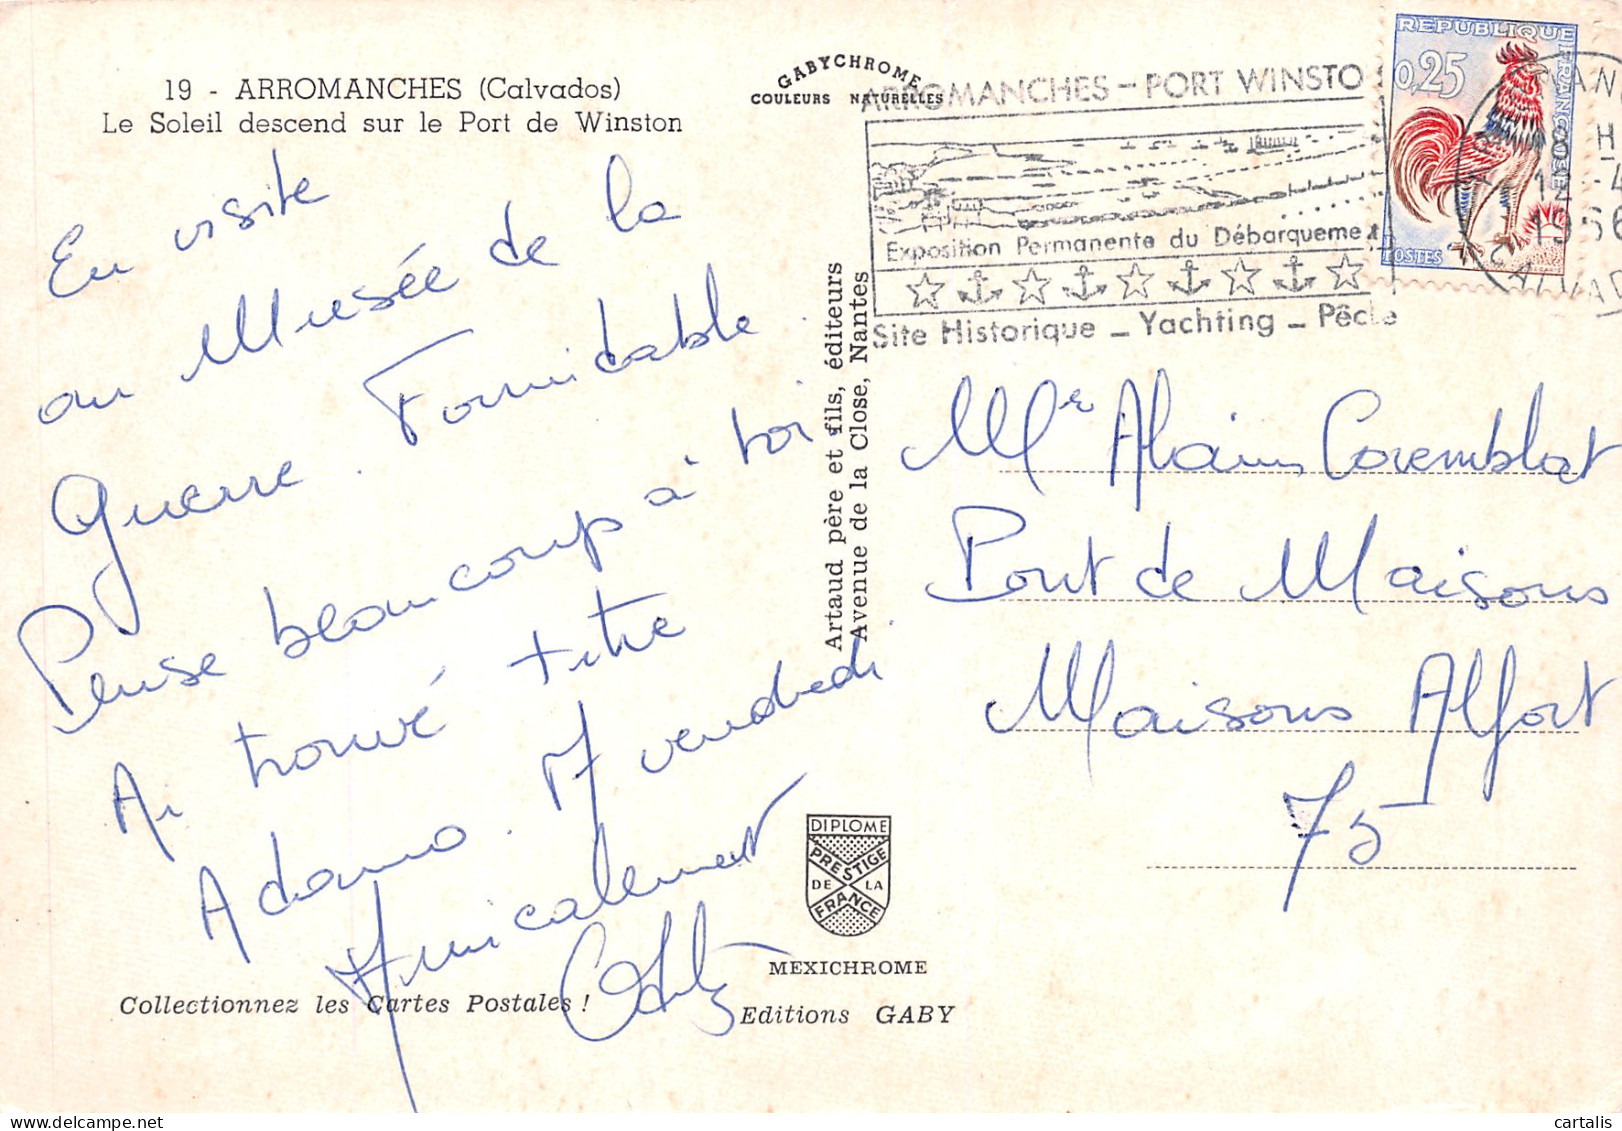 19 - ARROMANCHES (Calvados)
Le Soleil descend sur le Port de Winston
En visite
au Musée de la
Guerre. Formidable.
Pense beaucoup à toi
Ai trouvé titre
Adamo. A vendredi
Amicalement
GABYCHROME
COULEURS NATURELLES
Artaud père et fils, éditeurs
Avenue de la Close, Nantes
DIPLOME
PRESTIGE
DE LA
FRANCE
MEXICHROME
Collectionnez les Cartes Postales !
Editions GABY
ARROMANCHES - PORT WINSTO
Exposition Permanente du Débarqueme
Site Historique - Yachting - Pêche
REPUBLIQUE FRANCAISE
0,25
POSTES
8 H
12 - 4
1966
CALVAD
Mr Alain Coremblat
Pont de Maisons
Maisons Alfort
75
cartalis
delcampe.net